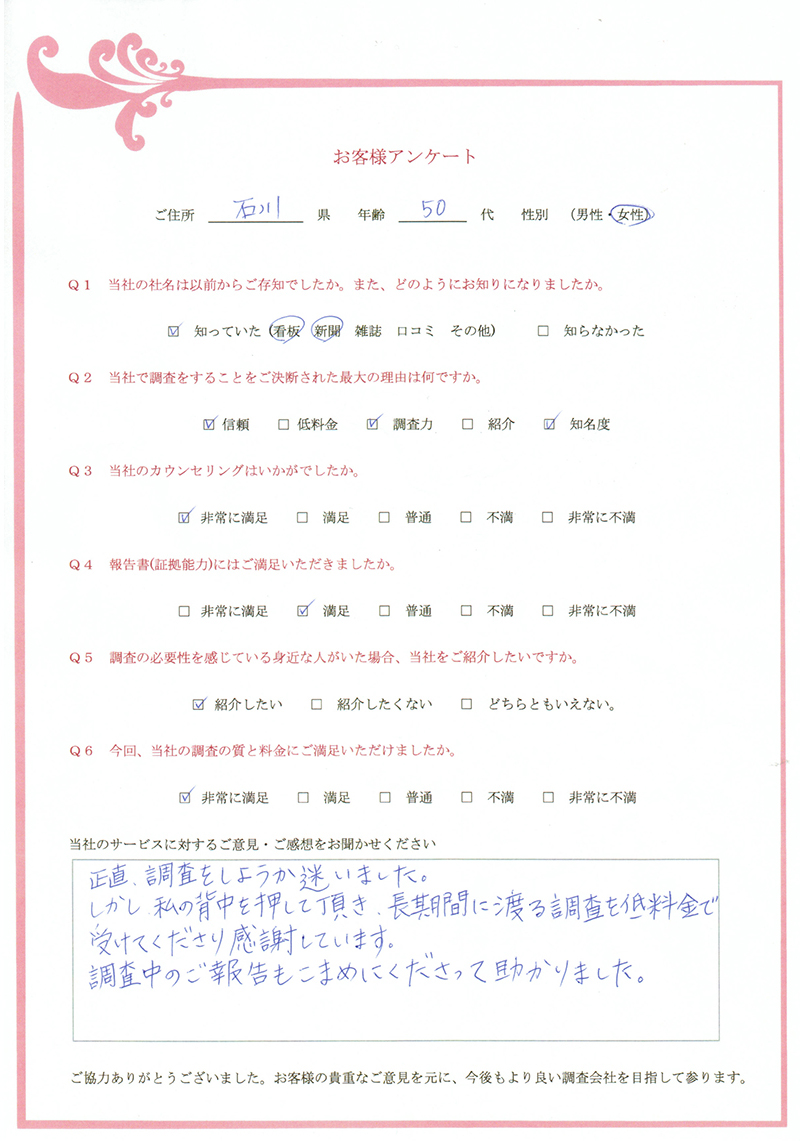 お客様アンケート
ご住所 石川 県 年齢 50 代 性別 (男性・女性)
Q1 当社の社名は以前からご存知でしたか。また、どのようにお知りになりましたか。
☑ 知っていた (看板 新聞 雑誌 口コミ その他) □ 知らなかった
Q2 当社で調査をすることをご決断された最大の理由は何ですか。
☑ 信頼 □ 低料金 ☑ 調査力 □ 紹介 ☑ 知名度
Q3 当社のカウンセリングはいかがでしたか。
☑ 非常に満足 □ 満足 □ 普通 □ 不満 □ 非常に不満
Q4 報告書(証拠能力)にはご満足いただきましたか。
□ 非常に満足 ☑ 満足 □ 普通 □ 不満 □ 非常に不満
Q5 調査の必要性を感じている身近な人がいた場合、当社をご紹介したいですか。
☑ 紹介したい □ 紹介したくない □ どちらともいえない。
Q6 今回、当社の調査の質と料金にご満足いただけましたか。
☑ 非常に満足 □ 満足 □ 普通 □ 不満 □ 非常に不満
当社のサービスに対するご意見・ご感想をお聞かせください
正直、調査をしようか迷いました。
しかし、私の背中を押して頂き、長期期間に渡る調査を低料金で
受けてくださり感謝しています。
調査中のご報告もこまめにくださって助かりました。
ご協力ありがとうございました。お客様の貴重なご意見を元に、今後もより良い調査会社を目指して参ります。